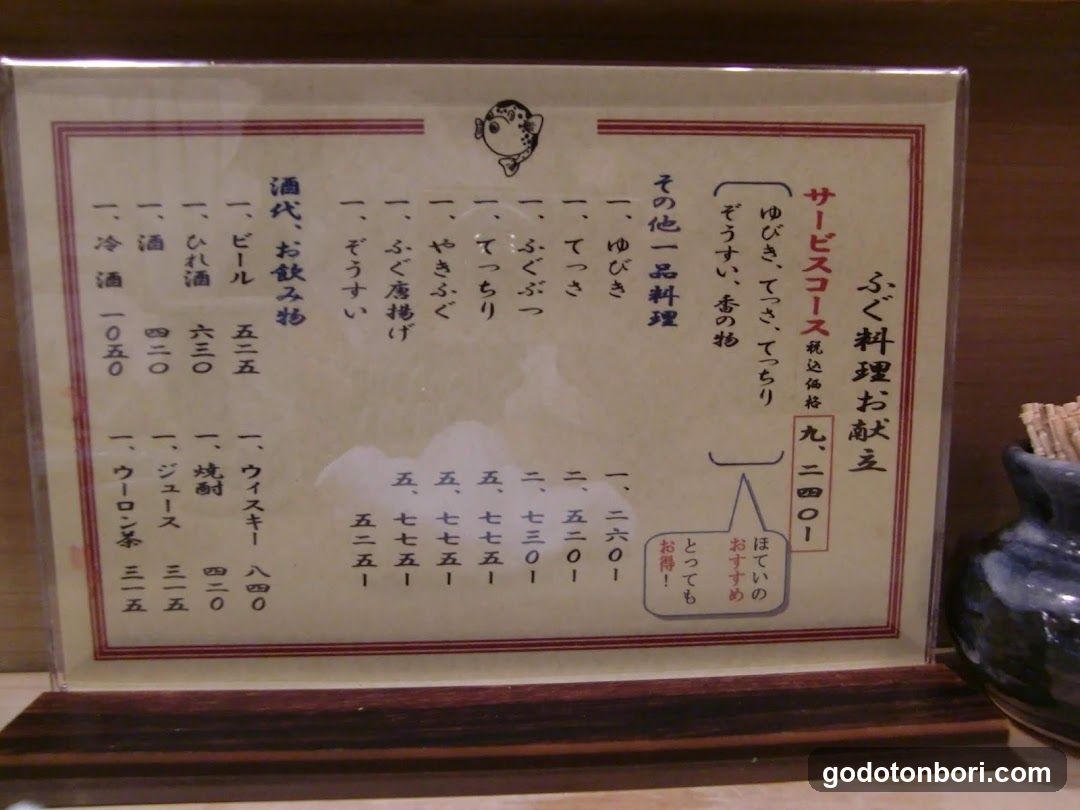 ふぐ料理お献立
サービスコース 税込価格 九、二四〇ー
ゆびき、てっさ、てっちり
ぞうすい、香の物
ほていの
おすすめ
とっても
お得！
その他一品料理
一、ゆびき 一、二六〇ー
一、てっさ 二、五二〇ー
一、ふぐぶつ 二、七三〇ー
一、てっちり 五、七七五ー
一、やきふぐ 五、七七五ー
一、ふぐ唐揚げ 五、七七五ー
一、ぞうすい 五二五ー
酒代、お飲み物
一、ビール 五二五
一、ひれ酒 六三〇
一、酒 四二〇
一、冷酒 一〇五〇
一、ウィスキー 八四〇
一、焼酎 四二〇
一、ジュース 三一五
一、ウーロン茶 三一五
godotonbori.com